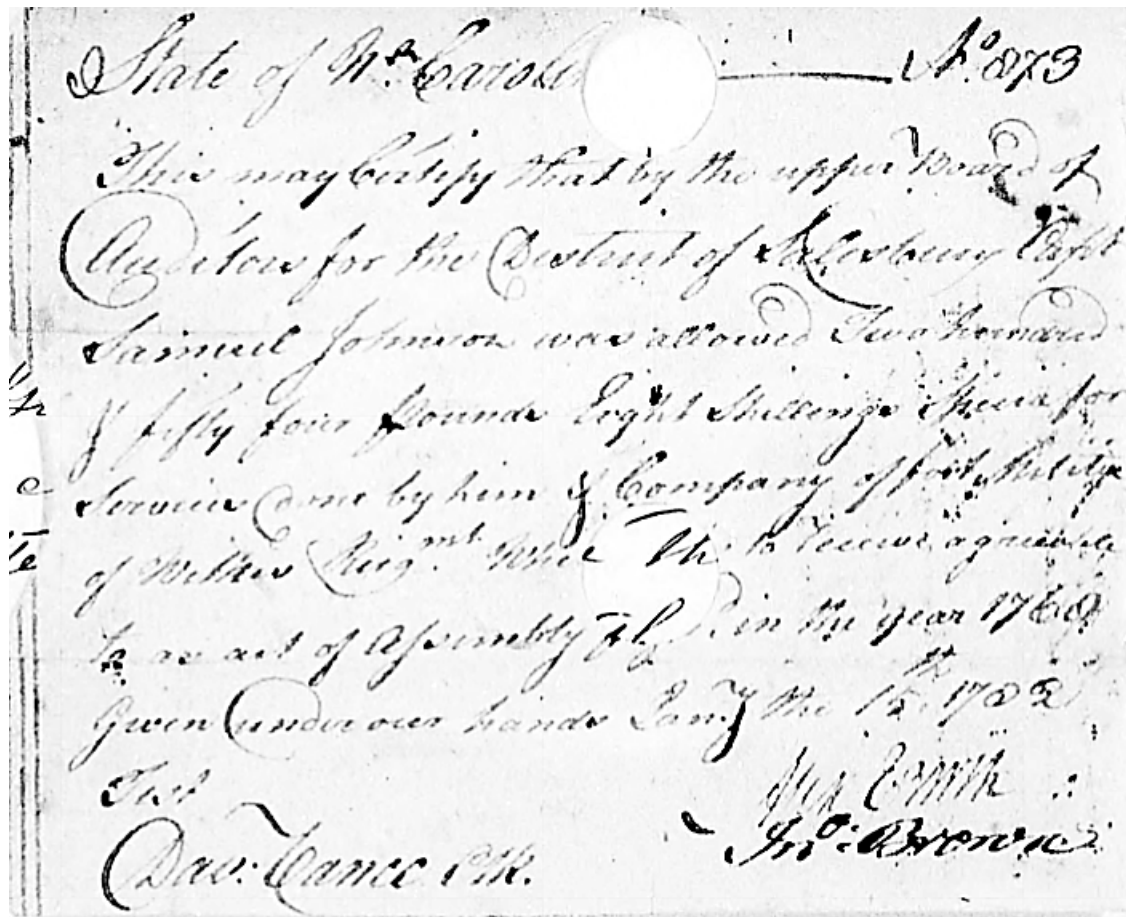 State of No. Caroli No. 873
This may Certify that by the upper Board of
Auditors for the District of Salesbury Capt
Samuel Johnson was allowed Two Hundred
& fifty four pounds Eight Shillings Specia for
Services done by him & Company of foot Militia
of Wilkes Regmt. to Receive agreeable
to an act of Assembly in the year 178
Given under our hands Jany the 12th 1782
Test
Davd. Cth.
Jno. Brown